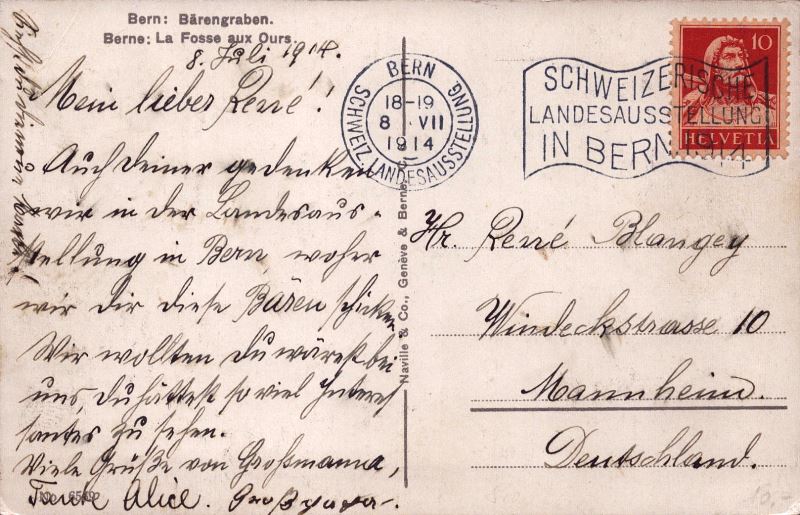 Bern: Bärengraben.
Berne: La Fosse aux Ours.
8. Juli 1914.
Mein lieber René!
Auch deiner gedenken
wir in der Landesaus-
stellung in Bern woher
wir dir diese Bären schicken
Wir wollten du wärest bei
uns, du hättest so viel Interes
santes zu sehen.
Viele Grüße von Großmama,
Tante Alice. Großpapa.
No. 6549
Naville & Co., Genève & Berne
BERN
18-19
8 VII
1914
SCHWEIZ. LANDESAUSSTELLUNG
SCHWEIZERISCHE
LANDESAUSSTELLUNG
IN BERN 1914
10
HELVETIA
Hr. René Blangey
Windeckstrasse 10
Mannheim.
Deutschland.
10,-